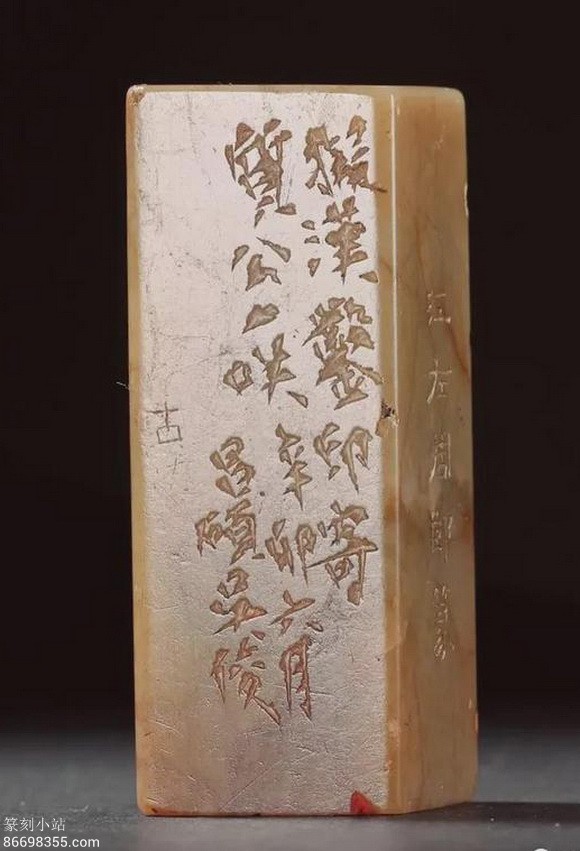 拟汉凿印寄
寶公一咲辛卯六月
昌碩吴俊
古
江左周郎篆
篆刻小站
86698355.com